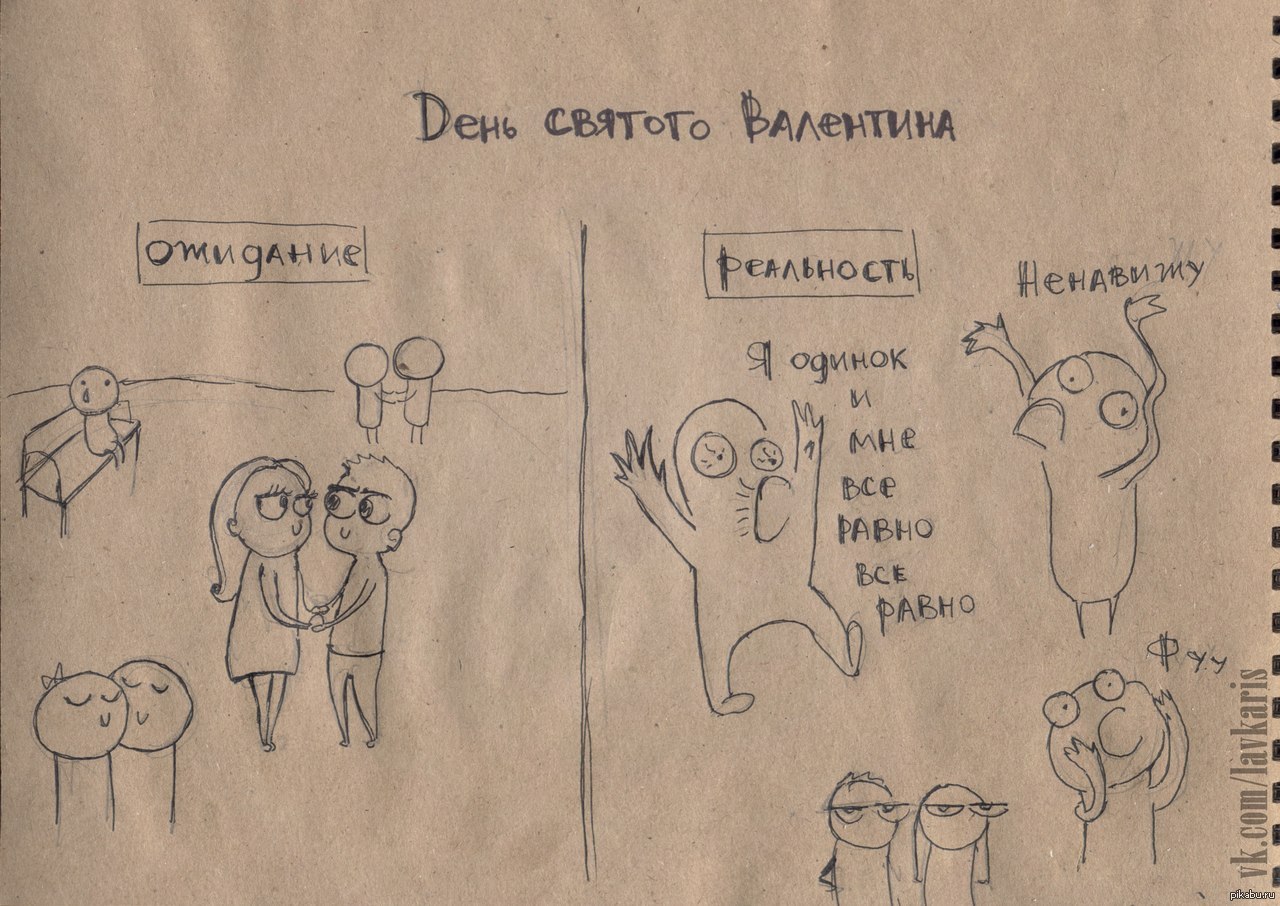 День святого Валентина
ожидание
реальность
Ненавижу
Я одинок
и
мне
все
равно
все
равно
Фуу
vk.com/lavkaris
pikabu.ru